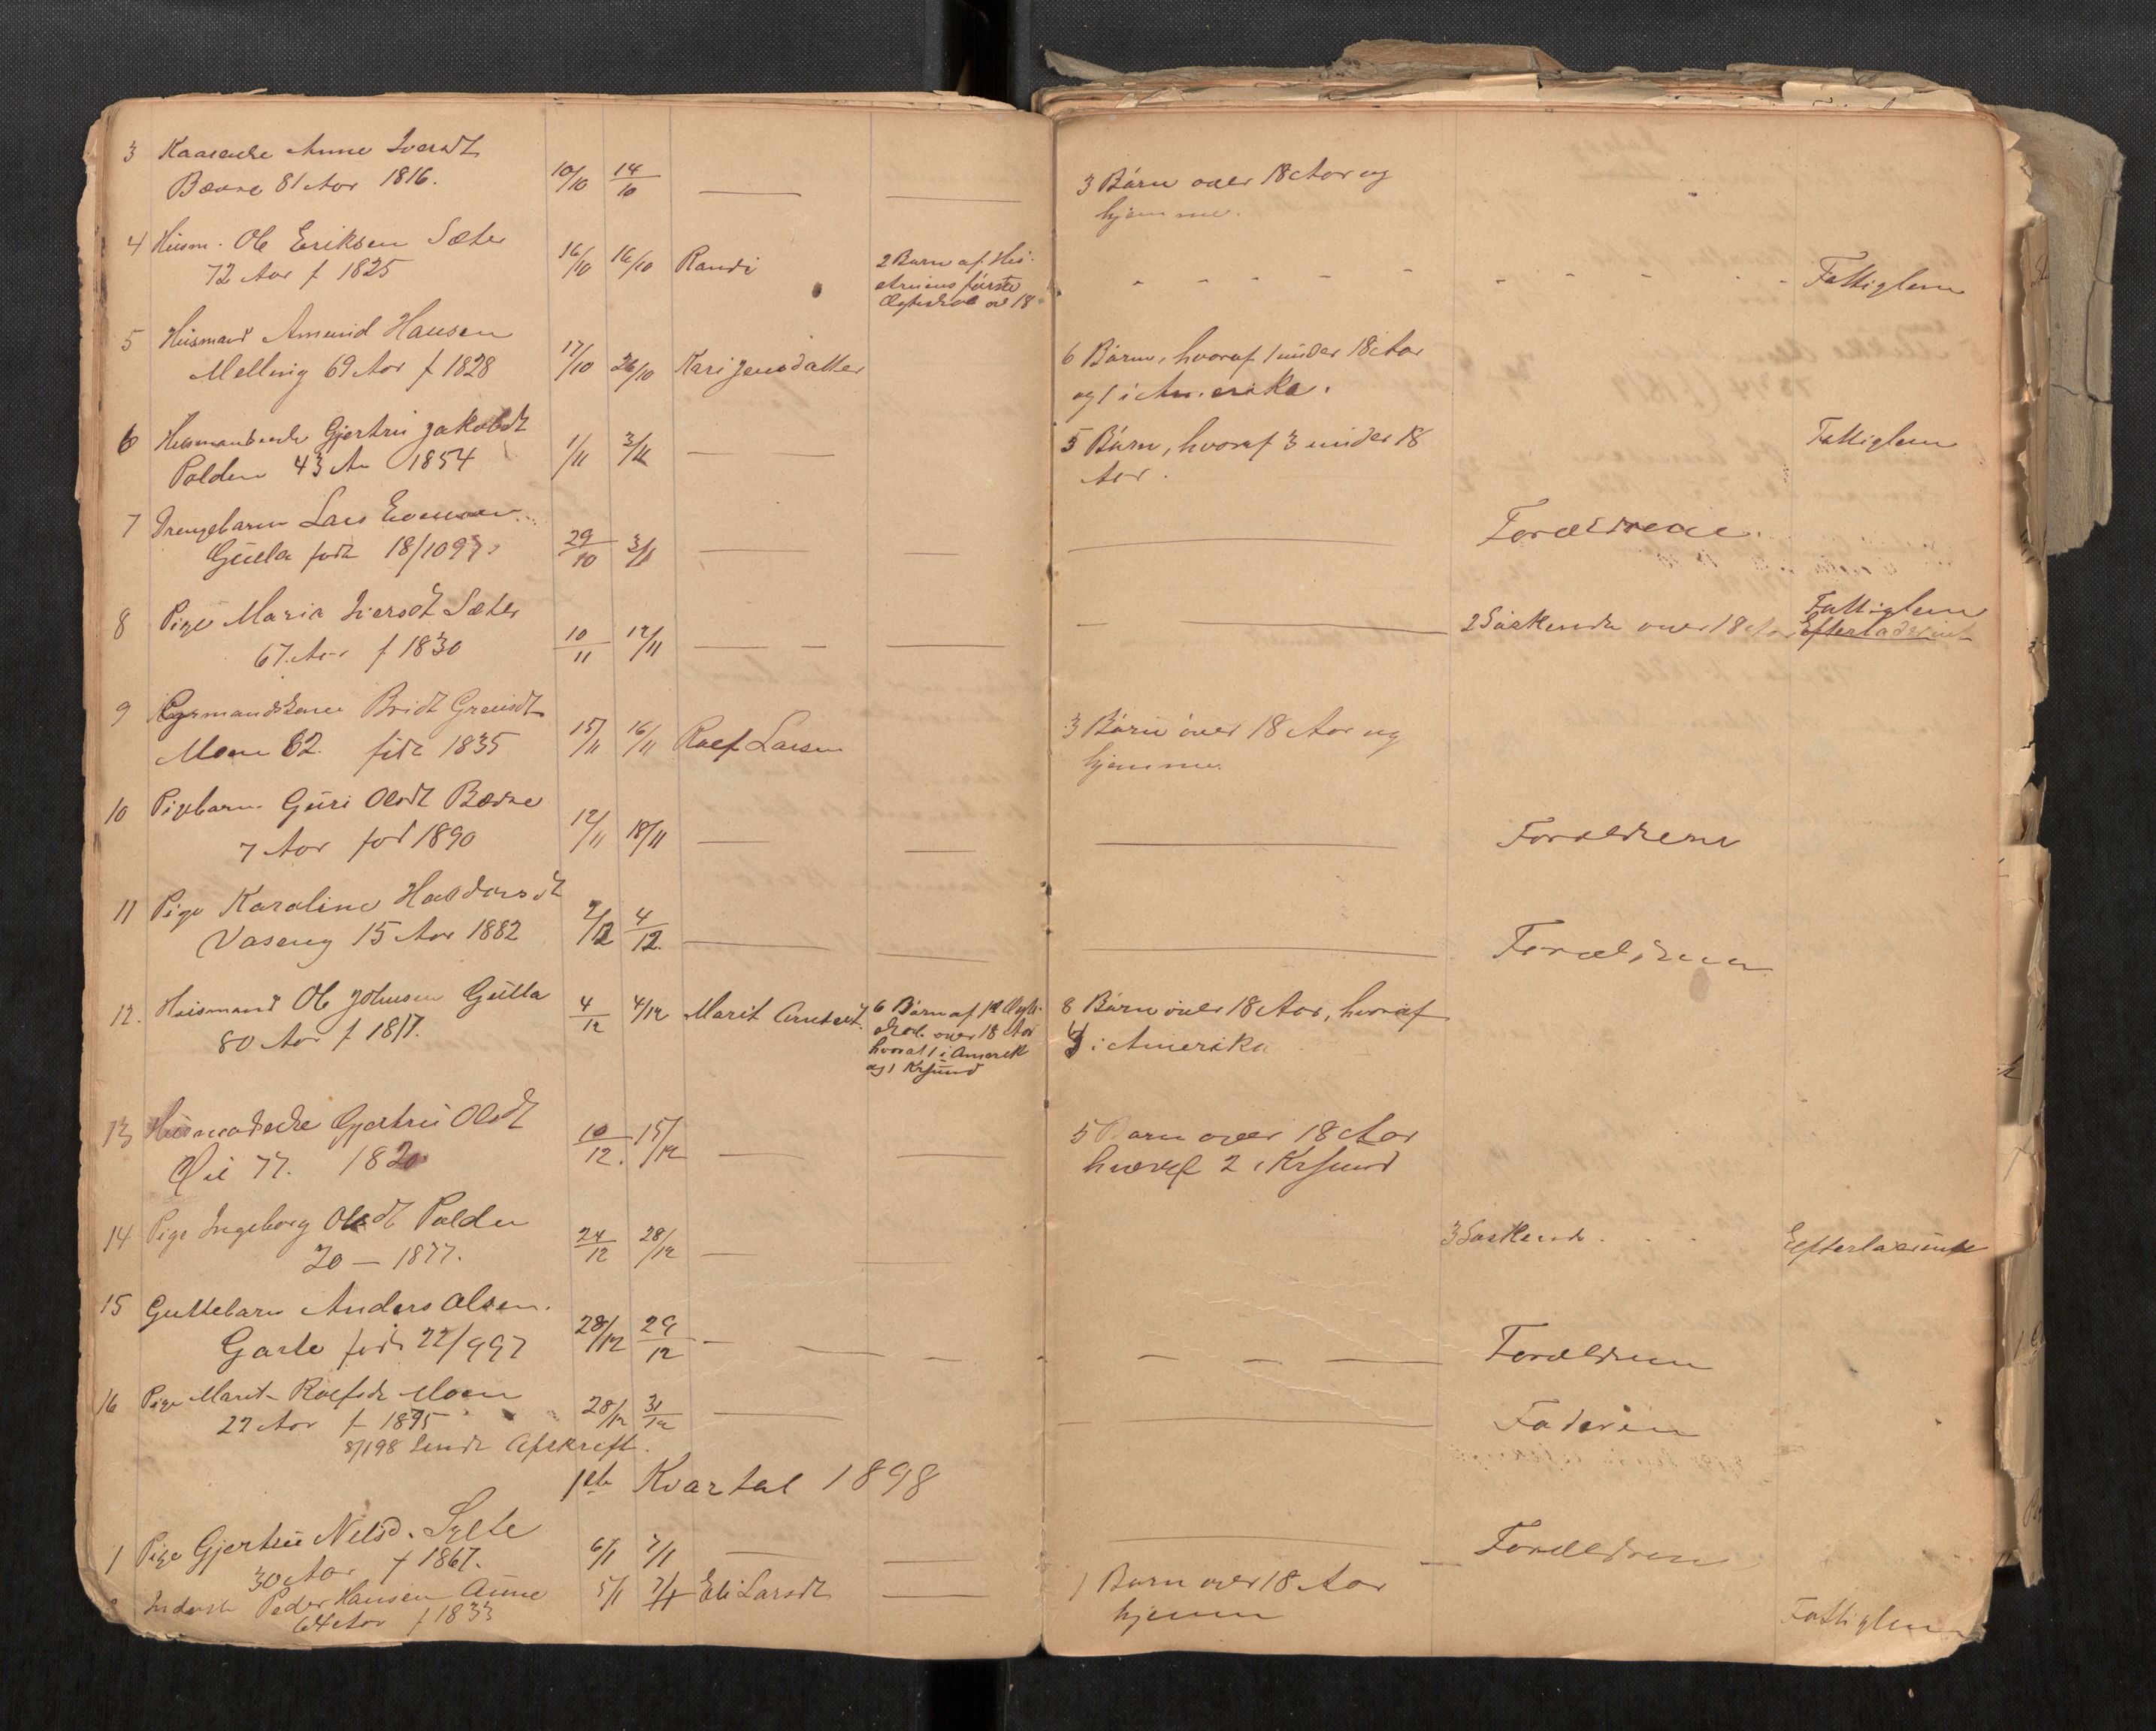 3 Kaarenke Anne Iversdt
Bævre 81 Aar 1816. 10/10 14/10
3 Børn over 18 Aar og
hjemme.
4 Husm. Ole Eriksen Sæter
72 Aar f 1825 16/10 16/10 Randi
2 Barn af Hu-
struens første
Ægteskab ov 18
Fattiglem
5 Husmand Amund Hansen
Melling 69 Aar f 1828 17/10 26/10 Kari Jensdatter
6 Børn, hvoraf 1 under 18 Aar
og 1 i Amerika.
6 Gjertru Jakobdt
Polden 43 Aa 1854 1/11 3/11
5 Børn, hvoraf 3 under 18
Aar.
Fattiglem
7 Drengebarn Lars Evensen
Gulla født 18/10 97. 29/10 3/11
Forældrene
8 Pige Maria Iversdt Sæter
67 Aar f 1830 10/11 12/11
2 Søskende over 18 Aar
Fattiglem
Efterladt
9 Bridt
Moen 62. født 1835 15/11 16/11 Roef Larsen
3 Børn over 18 Aar og
hjemme.
10 Pigebarn Guri Olsdt Bævre
7 Aar fød 1890 12/11 18/11
Forældrene
11 Pige Karoline Haldorsdt
Vaseng 15 Aar 1882 2/12 4/12.
Forældrene
12. Husmand Ole Johnsen Gulla
80 Aar f 1817. 4/12 4/12 Marit Arntsdt.
6 Børn af 1st Ægte-
skab over 18 Aar
hvoraf 1 i Amerik
og 1 Krsund
8 Børn over 18 Aar, hvoraf
i Amerika
13 Gjertru Olsdt
77. 1820 10/12. 15/12
5 Barn over 18 Aar
hvoraf 2 i Krsund
14 Pige Ingeborg Olsdt Polden
20 — 1877. 24/12 28/12
3 Søskende
15 Guttebarn Anders Olsen.
Garte født 22/9 97 28/12 29/12
Forældrene
16 Pige Marit Roefsdt Moen
22 Aar f 1875 28/12 31/12
Faderen
8/1 98 Sendt Afskrift.
1ste Kvartal 1898
1 Pige Gjertru Nilsd. Sylte
30 Aar f 1867. 6/1 7/1
Forældrene
Inderst Peder Hansen Aune
64 Aar f 1833 5/1 7/1 Eli Larsdt
1 Barn over 18 Aar
hjemme
Fattiglem